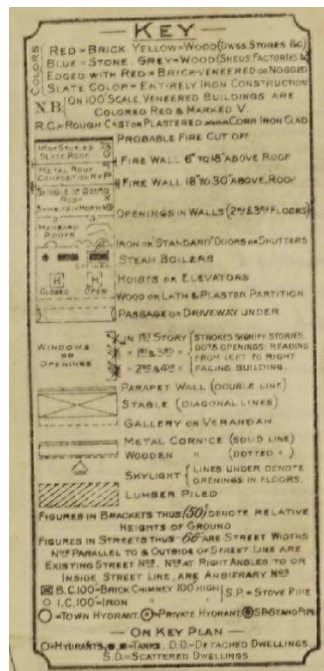 KEY
COLORS
RED = BRICK. YELLOW = WOOD (DWGS. STORES &c)
BLUE = STONE. GREY = WOOD (SHEDS FACTORIES &c)
EDGED WITH RED = BRICK-VENEERED OR NOGGED
SLATE COLOR = ENTIRELY IRON CONSTRUCTION
N.B. ON 100' SCALE VENEERED BUILDINGS ARE
COLORED RED & MARKED V.
R.C = ROUGH CAST OR PLASTERED CORR. IRON CLAD
PROBABLE FIRE CUT OFF
Nº OF STORIES
SLATE ROOF
FIRE WALL 6" TO 18" ABOVE ROOF
METAL ROOF
COMPOSITION
FIRE WALL 18" TO 30" ABOVE ROOF
SHINGLE OR BOARD
ROOF
SHINGLES IN MORTAR
OPENINGS IN WALLS (2ND & 3RD FLOORS)
MANSARD
ROOFS
IRON OR "STANDARD" DOORS OR SHUTTERS
STEAM BOILERS
H H
CLOSED OPEN
HOISTS OR ELEVATORS
WOOD OR LATH & PLASTER PARTITION
PASSAGE OR DRIVEWAY UNDER
WINDOWS
OR
OPENINGS
IN 1ST STORY
" 1ST & 3RD "
" 2ND & 4TH "
STROKES SIGNIFY STORIES
DOTS OPENINGS: READING
FROM LEFT TO RIGHT
FACING BUILDING.
PARAPET WALL (DOUBLE LINE)
STABLE (DIAGONAL LINES)
GALLERY OR VERANDAH
METAL CORNICE (SOLID LINE)
WOODEN " (DOTTED " )
SKYLIGHT { LINES UNDER DENOTE
OPENINGS IN FLOORS.
LUMBER PILED
FIGURES IN BRACKETS THUS (50) DENOTE RELATIVE
HEIGHTS OF GROUND
FIGURES IN STREETS THUS 66' ARE STREET WIDTHS
Nos PARALLEL TO & OUTSIDE OF STREET LINE ARE
EXISTING STREET Nos. Nos AT RIGHT ANGLES TO OR
INSIDE STREET LINE, ARE ARBITRARY Nos
B.C. 100' = BRICK CHIMNEY 100' HIGH
I.C. 100' = IRON " " "
S.P. = STOVE PIPE
= TOWN HYDRANT. = PRIVATE HYDRANT. S.P. STAND PIPE
ON KEY PLAN
= HYDRANTS. = TANKS. D.D. = DETACHED DWELLINGS.
S.D. = SCATTERED DWELLINGS